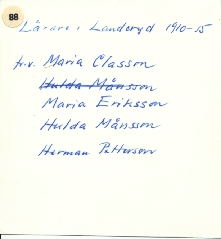 88
Lärare i Landeryd 1910-15
fr.v. Maria Classon
Hulda Månsson
Maria Eriksson
Hulda Månsson
Herman Petterson